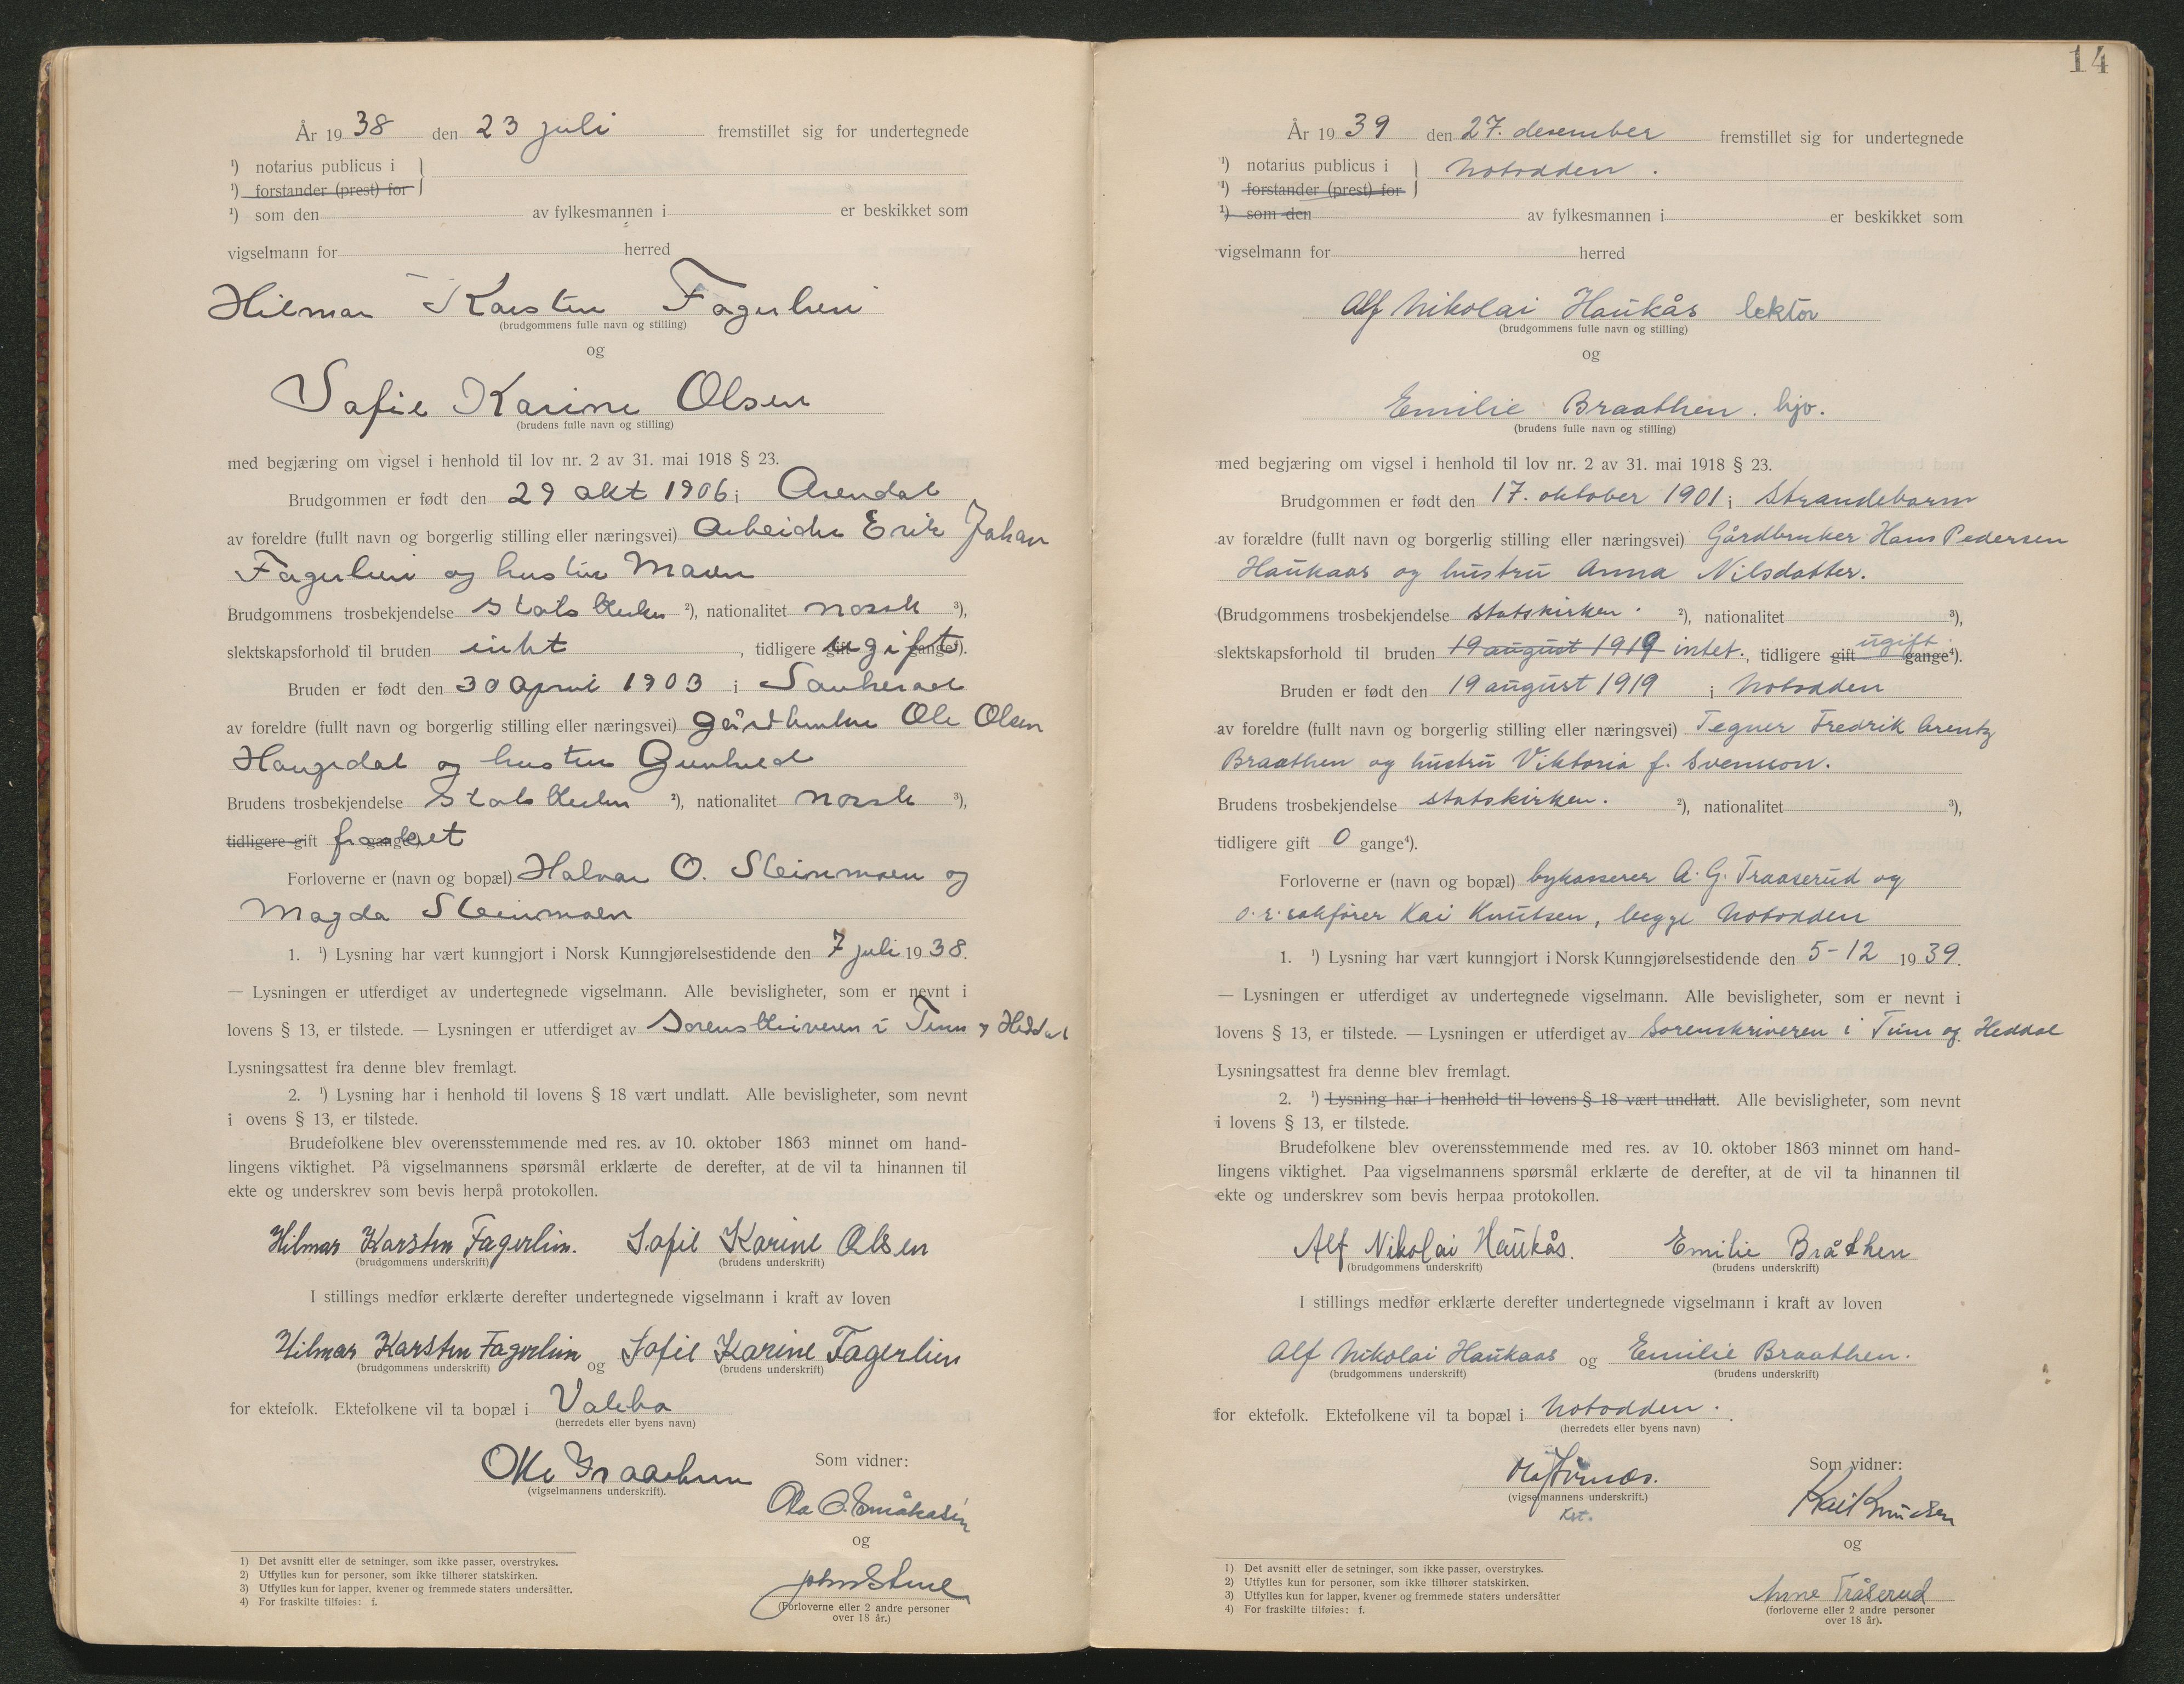 År 1938 den 23 juli fremstillet sig for undertegnede
¹) notarius publicus i
¹) forstander (prest) for
¹) som den av fylkesmannen i er beskikket som
vigselmann for herred
Hilmar Karsten Fagerlien
(brudgommens fulle navn og stilling)
og
Sofie Karine Olsen
(brudens fulle navn og stilling)
med begjæring om vigsel i henhold til lov nr. 2 av 31. mai 1918 § 23.
Brudgommen er født den 29 okt 1906 i Arendal
av foreldre (fullt navn og borgerlig stilling eller næringsvei) Arbeider Erik Johan
Fagerlien og hustru Maren
Brudgommens trosbekjendelse Statskirken ²), nationalitet norsk ³),
slektskapsforhold til bruden intet, tidligere gift ugift gange⁴).
Bruden er født den 30 april 1903 i Sauherad
av foreldre (fullt navn og borgerlig stilling eller næringsvei) gårdbruker Ole Olsen
Haugedal og hustru Gunhild
Brudens trosbekjendelse Statskirken ²), nationalitet norsk ³),
tidligere gift fraskilt gange⁴)
Forloverne er (navn og bopæl) Halvor O. Steinmoen og
Magda Steinmoen
1. ¹) Lysning har vært kunngjort i Norsk Kunngjørelsestidende den 7 juli 1938.
— Lysningen er utferdiget av undertegnede vigselmann. Alle bevisligheter, som er nevnt i
lovens § 13, er tilstede. — Lysningen er utferdiget av Sorenskriveren i Tinn og Heddal
Lysningsattest fra denne blev fremlagt.
2. ¹) Lysning har i henhold til lovens § 18 vært undlatt. Alle bevisligheter, som nevnt
i ovens § 13, er tilstede.
Brudefolkene blev overensstemmende med res. av 10. oktober 1863 minnet om hand-
lingens viktighet. På vigselmannens spørsmål erklærte de derefter, at de vil ta hinannen til
ekte og underskrev som bevis herpå protokollen.
Hilmar Karsten Fagerlien. Sofie Karine Olsen
(brudgommens underskrift) (brudens underskrift)
I stillings medfør erklærte derefter undertegnede vigselmann i kraft av loven
Hilmar Karsten Fagerlien og Sofie Karine Fagerlien
(brudgommens underskrift) (brudens underskrift)
for ektefolk. Ektefolkene vil ta bopæl i Valebø
(herredets eller byens navn)
Som vidner:
(vigselmannens underskrift).
og
(Forloverne eller 2 andre personer
over 18 år.)
1) Det avsnitt eller de setninger, som ikke passer, overstrykes.
2) Utfylles kun for personer, som ikke tilhører statskirken.
3) Utfylles kun for lapper, kvener og fremmede staters undersåtter.
4) For fraskilte tilføies: f.
14
År 1939 den 27. desember fremstillet sig for undertegnede
¹) notarius publicus i Notodden.
¹) forstander (prest) for
¹) som den av fylkesmannen i er beskikket som
vigselmann for herred
Alf Nikolai Haukås lektor
(brudgommens fulle navn og stilling)
og
Emilie Braathen. hjv.
(brudens fulle navn og stilling)
med begjæring om vigsel i henhold til lov nr. 2 av 31. mai 1918 § 23.
Brudgommen er født den 17. oktober 1901 i Strandebarm
av forældre (fullt navn og borgerlig stilling eller næringsvei) Gårdbruker Hans Pedersen
Haukaas og hustru Anna Nilsdatter.
(Brudgommens trosbekjendelse statskirken. ²), nationalitet ³),
slektskapsforhold til bruden 19 august 1919 intet., tidligere gift ugift. gange⁴).
Bruden er født den 19 august 1919 i Notodden
av foreldre (fullt navn og borgerlig stilling eller næringsvei) Tegner Fredrik Arentz
Braathen og hustru Viktoria f. Svenson.
Brudens trosbekjendelse statskirken. ²), nationalitet ³),
tidligere gift 0 gange⁴).
Forloverne er (navn og bopæl) bykasserer A. G. Traaserud og
o.r.sakfører Kai Knutsen, begge Notodden
1. ¹) Lysning har vært kunngjort i Norsk Kunngjørelsestidende den 5-12 1939.
— Lysningen er utferdiget av undertegnede vigselmann. Alle bevisligheter, som er nevnt i
lovens § 13, er tilstede. — Lysningen er utferdiget av Sorenskriveren i Tinn og Heddal
Lysningsattest fra denne blev fremlagt.
2. ¹) Lysning har i henhold til lovens § 18 vært undlatt. Alle bevisligheter, som nevnt
i lovens § 13, er tilstede.
Brudefolkene blev overensstemmende med res. av 10. oktober 1863 minnet om hand-
lingens viktighet. Paa vigselmannens spørsmål erklærte de derefter, at de vil ta hinannen til
ekte og underskrev som bevis herpaa protokollen.
Alf Nikolai Haukås. Emilie Bråthen
(brudgommens underskrift) (brudens underskrift)
I stillings medfør erklærte derefter undertegnede vigselmann i kraft av loven
Alf Nikolai Haukaas og Emilie Braathen.
(brudgommens underskrift) (brudens underskrift)
for ektefolk. Ektefolkene vil ta bopæl i Notodden.
(herredets eller byens navn)
Som vidner:
(vigselmannens underskrift.)
Kst.
Kai Knudsen
og
Anne Tråserud
(forloverne eller 2 andre personer
over 18 år).
1) Det avsnitt eller de setninger, som ikke passer, overstrykes.
2) Utfylles kun for personer, som ikke tilhører statskirken.
3) Utfylles kun for lapper, kvener og fremmede staters undersåtter
4) For fraskilte tilføies: f.